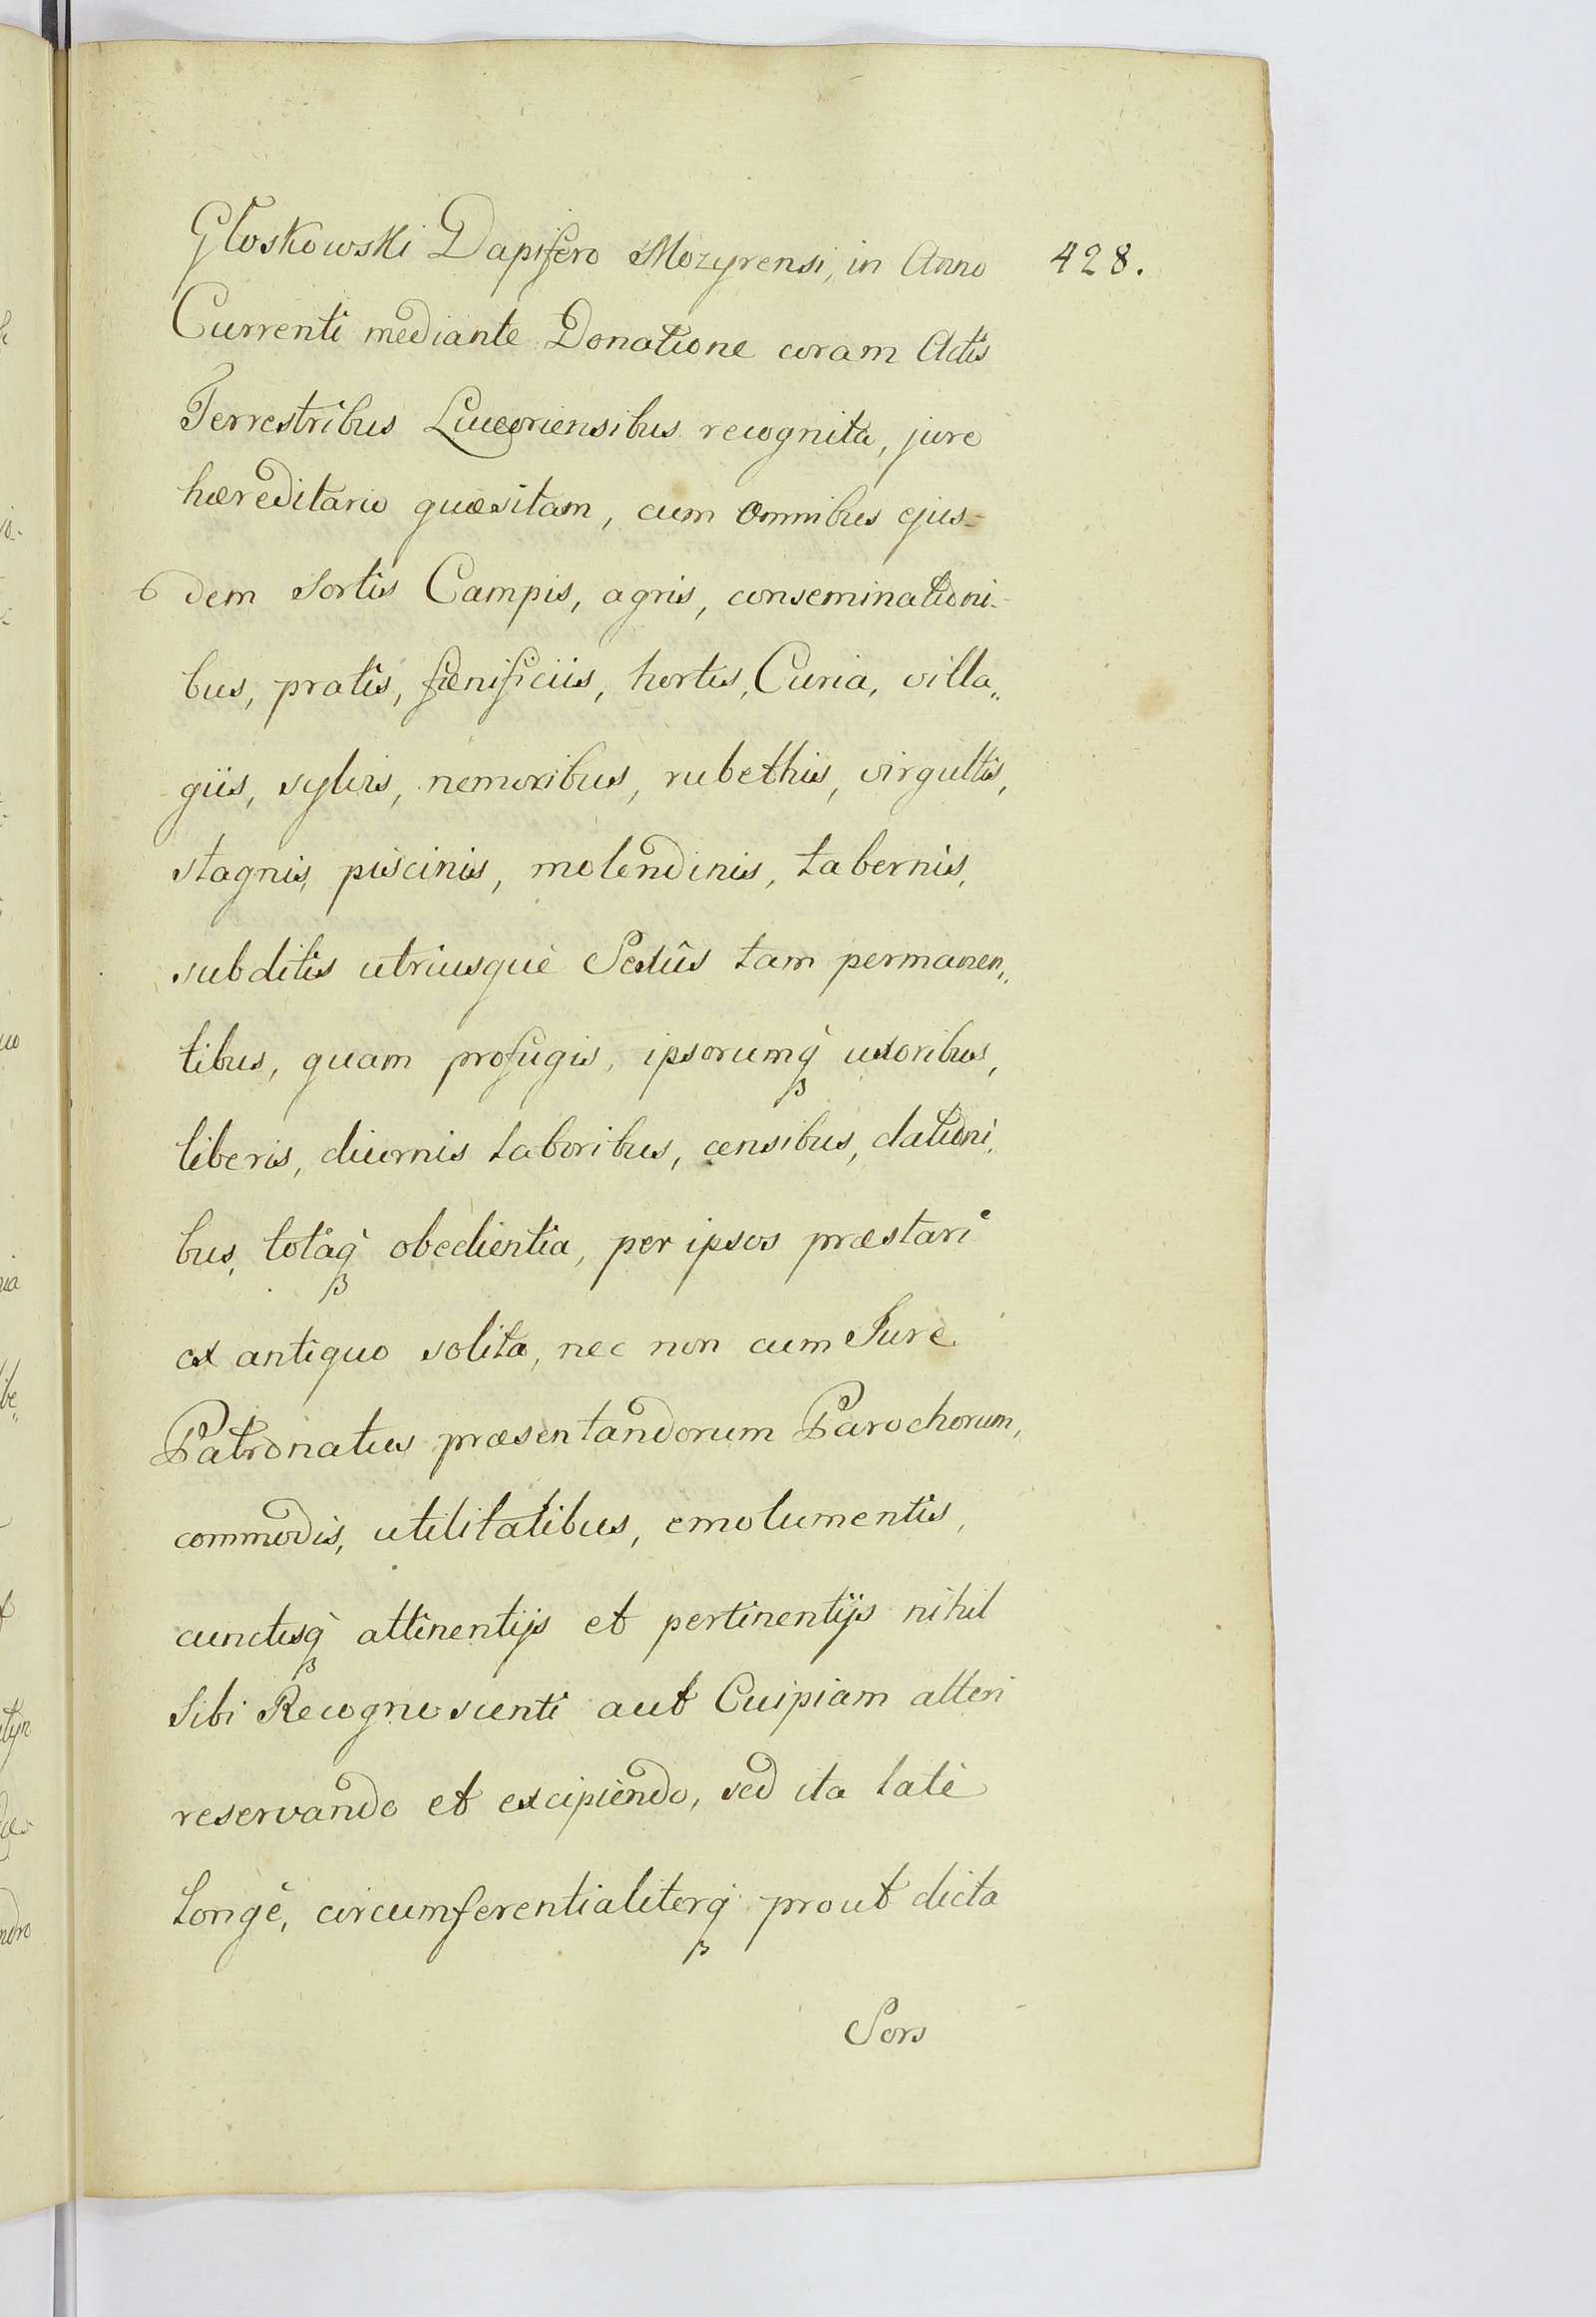 Gloskowski Dapifero Mozyrensi, in Anno 428.
Currenti mediante Donatione coram Actis
Terrestribus Luceoriensibus recognita, jure
hæreditario quæsitam, cum omnibus ejus=
dem Sortis Campis, agris, conseminationi-
bus, pratis, fœnificiis, hortis, Curia, villa„
giis, sylvis, nemoribus, rubethis, virgultis,
stagnis, piscinis, molendinis, tabernis,
subditis utriusquè Sexûs tam permanen„
tibus, quam profugis, ipsorumq̀ uxoribus,
liberis, diurnis laboribus, censibus, dationi„
bus, totaq̀ obedientia, per ipsos præstari
ex antiquo solita, nec non cum Jure
Patronatus præsentandorum Parochorum,
commodis, utilitatibus, emolumentis,
cunctisq̀ attinentijs et pertinentijs nihil
Sibi Recognoscenti aut Cuipiam alteri
reservando et excipiendo, sed ita latè
longè, circumferentialiterq̀ prout dicta
Sors